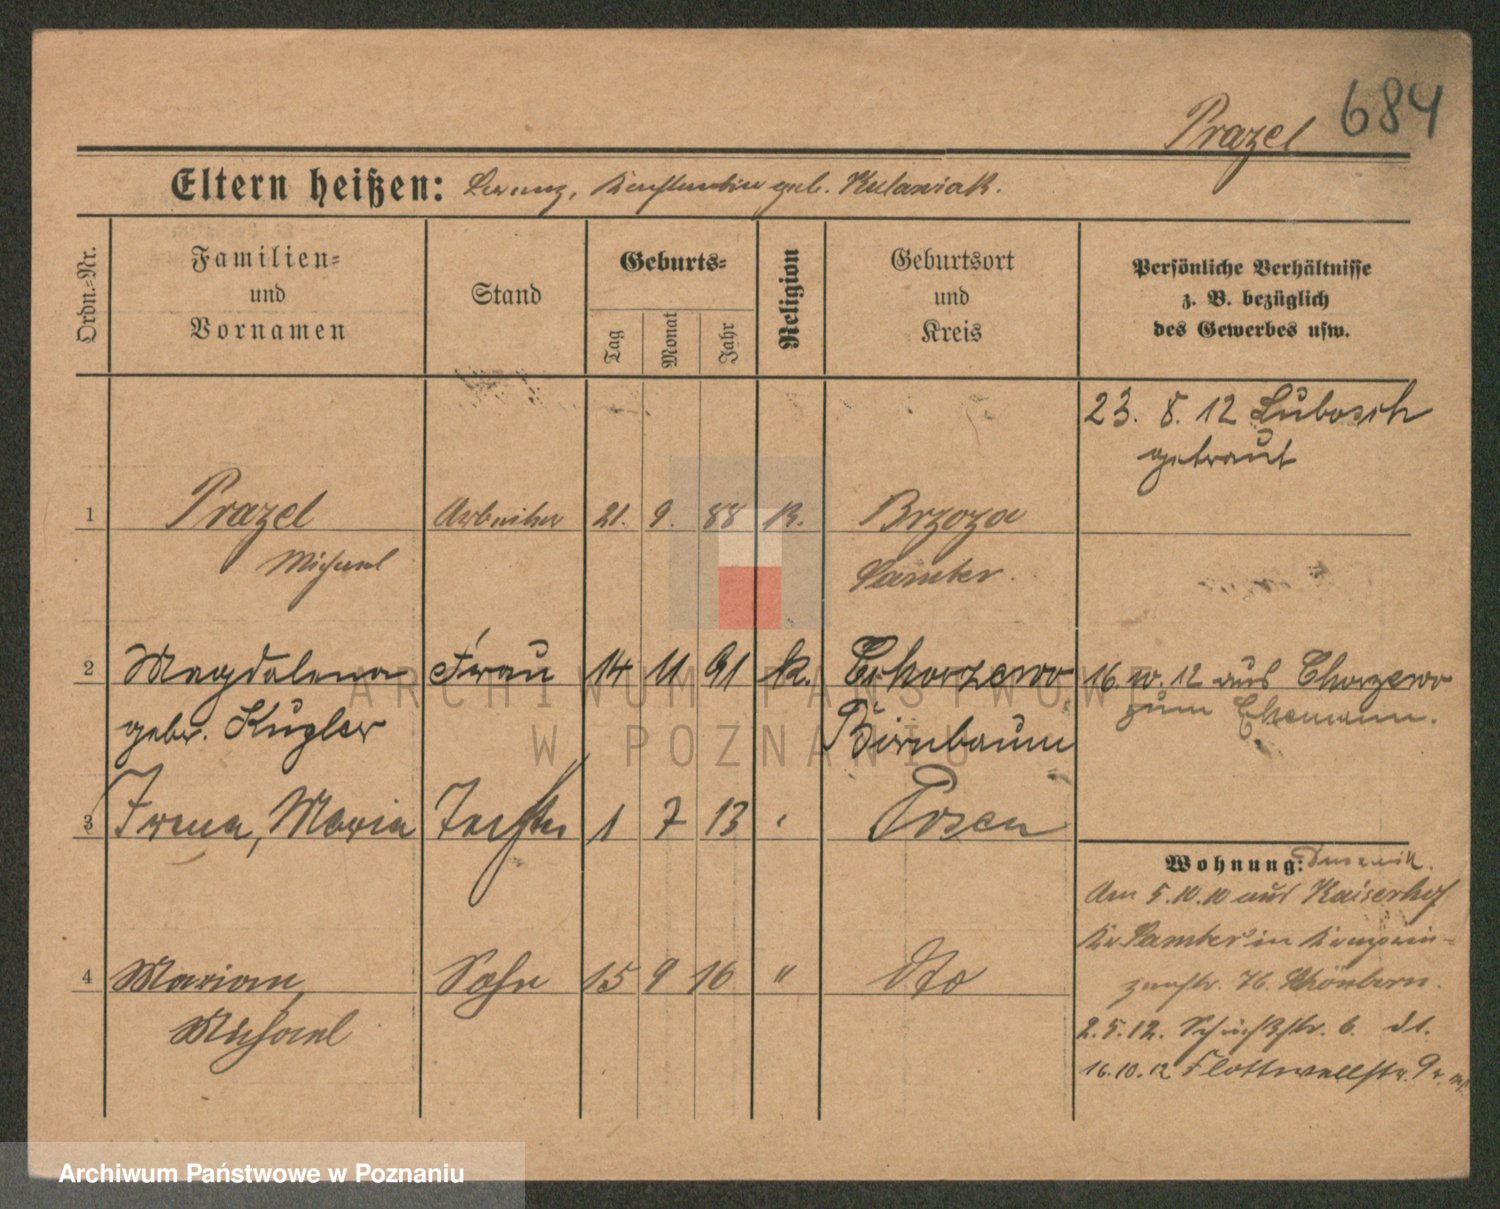 684
Prazel
Eltern heißen: Lorenz, Konstantia geb. Kulawiak.
Ordn.-Nr.
Familien-
und
Vornamen
Stand
Geburts-
Tag
Monat
Jahr
Religion
Geburtsort
und
Kreis
Persönliche Verhältnisse
z. B. bezüglich
des Gewerbes usw.
23. 8. 12 Lubosch
getraut
1 Prazel Arbeiter 21. 9. 88 K. Brzoza
Michael Samter.
2 Magdalena Frau 14 11 91 k. Chorzewo 16. 10. 12 aus Chorzewo
gebr. Kugler Birnbaum zum Ehemann.
3 Irena, Maria Tochter 1 7 13 Posen
Wohnung:
Am 5.10.10 aus Kaiserhof
Kr Samter in Kronprin-
4 Marian, Sohn 15 9 16 " dto
zenstr. 76.
Michael
2.5.12. 6.
16.10.12 Flottwellstr. 9
ARCHIWUM PAŃSTWOWE
W POZNANIU
Archiwum Państwowe w Poznaniu